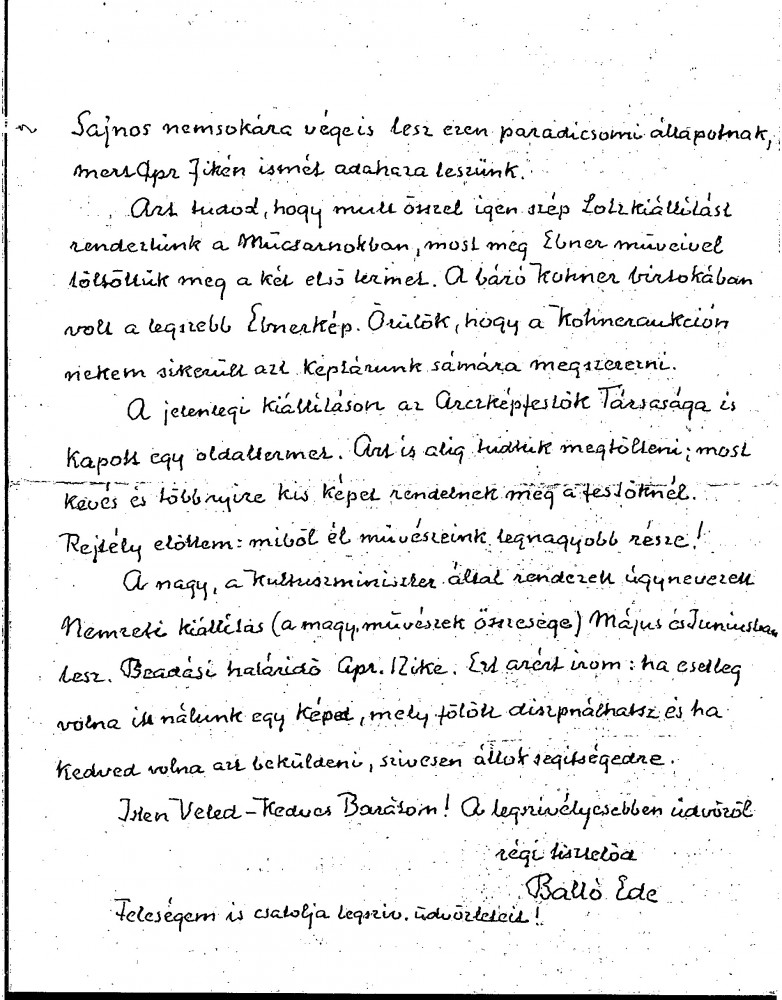 Sajnos nemsokára vége is lesz ezen paradicsomi állapotnak,
mert Apr 7ikén ismét adahaza leszünk.
Azt tudod, hogy mult ősszel igen szép Lotzkiállitást
rendeztünk a Műcsarnokban, most meg Ebner műveivel
töltöttük meg a két első termet. A báró Kohner birtokában
volt a legszebb Ebnerkép. Örülök, hogy a Kohneraukción
nekem sikerült azt képtárunk sámára megszerezni.
A jelenlegi kiállitáson az Arczképfestők Társasága is
kapott egy oldaltermet. Azt is alig tudtuk megtölteni; most
kevés és többnyire kis képet rendelnek meg a festőknél.
Rejtély előttem: miből él művészeink legnagyobb része!
A nagy, a Kultuszminiszter által rendezett úgynevezett
Nemzeti kiállitás (a magy. művészek összesége) Május és Juniusban
lesz. Beadási határidő Apr. 12ike. Ezt azért irom: ha esetleg
volna itt nálunk egy képed, mely fölött diszpnálhatsz és ha
kedved volna azt beküldeni, szivesen állok segitségedre.
Isten Veled - Kedves Barátom! A legszivélyesebben üdvözöl
régi tisztelőd
Balló Ede
Feleségem is csatolja legsziv. üdvözleteit!